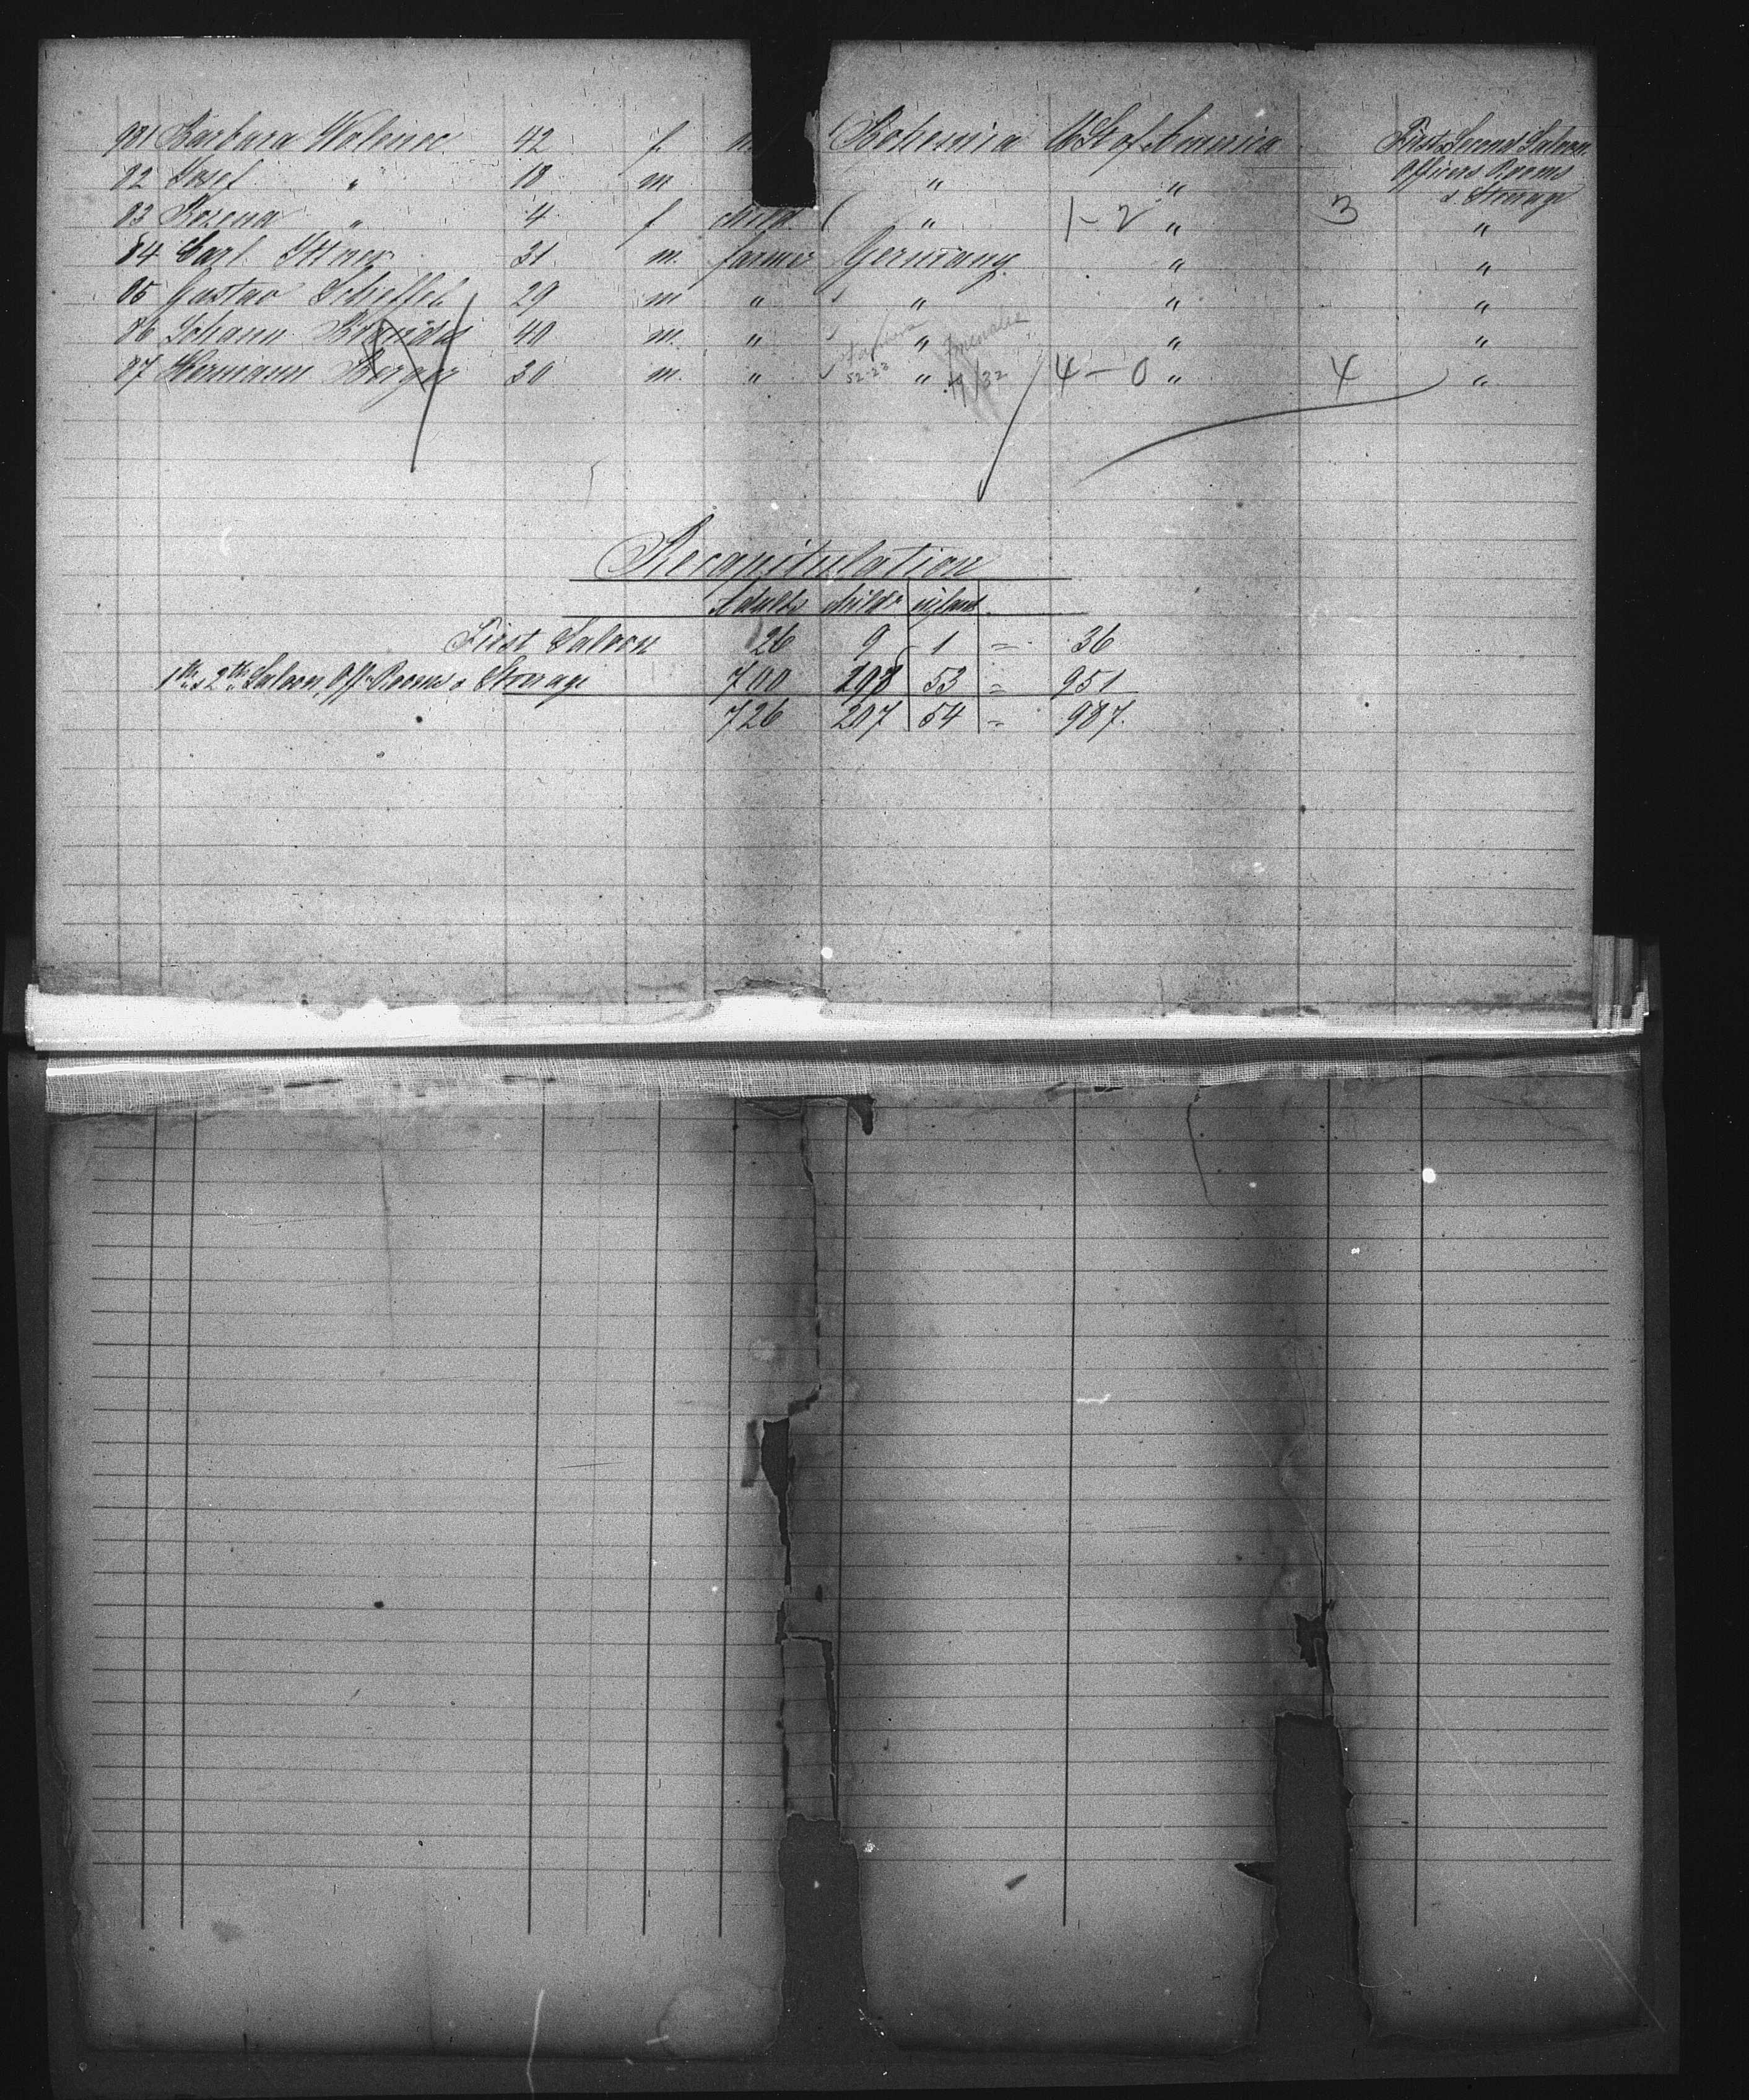 981 Barbara Wolenec 42 f. Bohemia U St of America First Second Saloon
82 Josef " 18 m " " Officers Rooms
& Steerage
83 Bozena " 4 f child " 1-2 " 3 "
84 Carl Ittner 31 m. farmer Germany " "
85 Gustav Scheffel 29 m " " " "
86 Johann 40 m. " " " "
87 Hermann Berger 30 m. " 52-23 " 19/32 4-0 " 4 "
Recapitulation
Adults childr infant.
First Saloon 26 9 1 = 36
1th & 2th Saloon, Off. Rooms & Steerage 700 198 53 = 951
726 207 54 = 987.